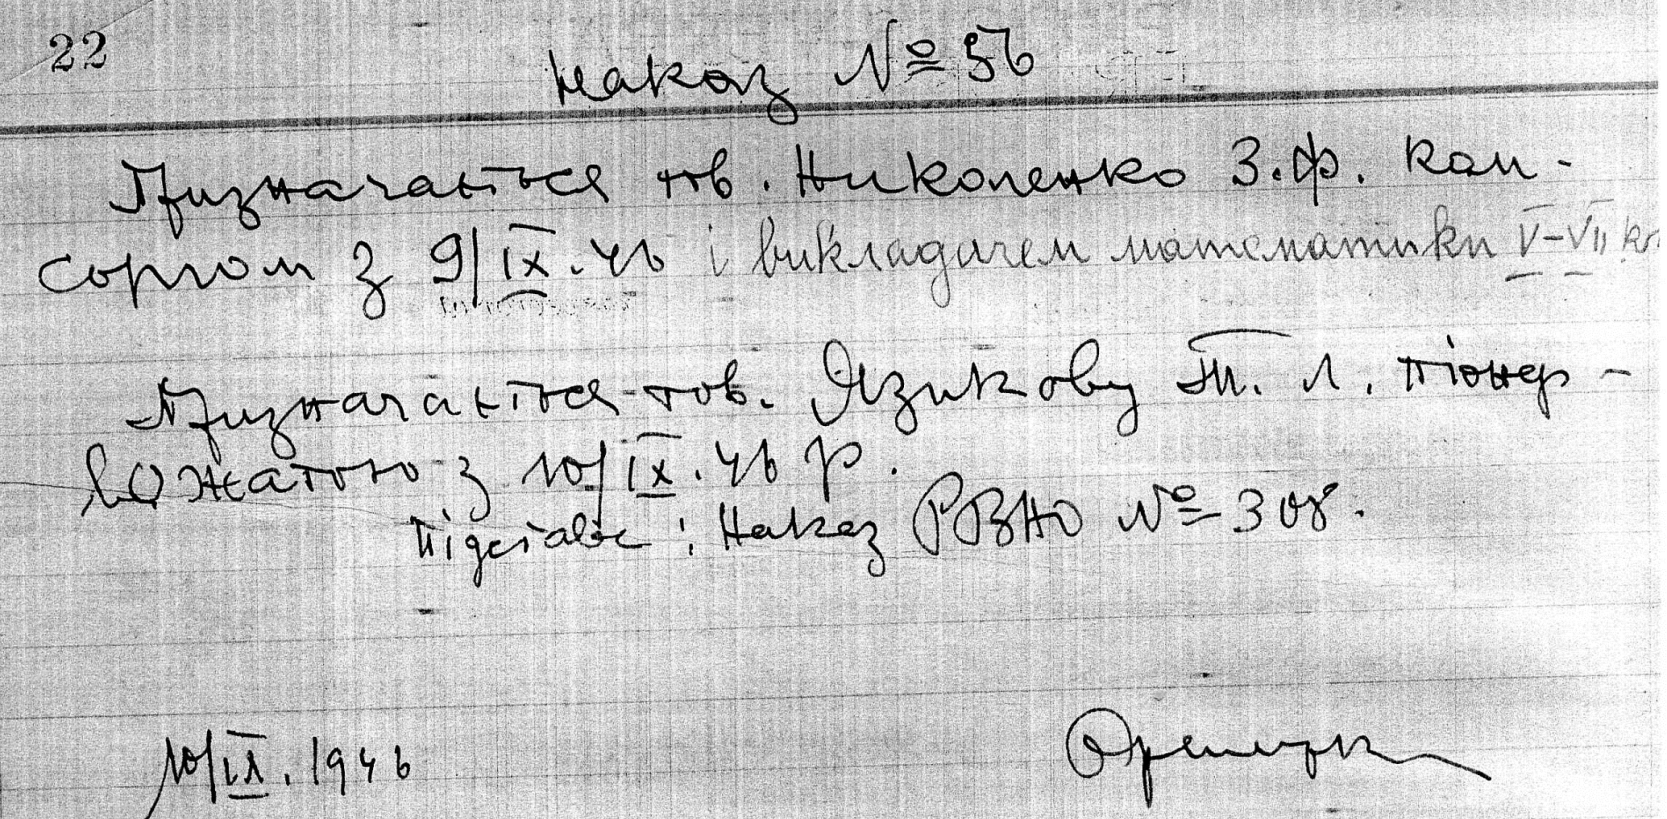 22
Наказ № 56
Призначається тов. Николенко З.Ф. ком-
соргом з 9/IX.46 і викладачем математики V-VII кл
Призначається тов. Язикову Т. Л. піонер-
вожатою з 10/IX.46 р.
Підстава: Наказ РВНО № 308.
10/IX. 1946